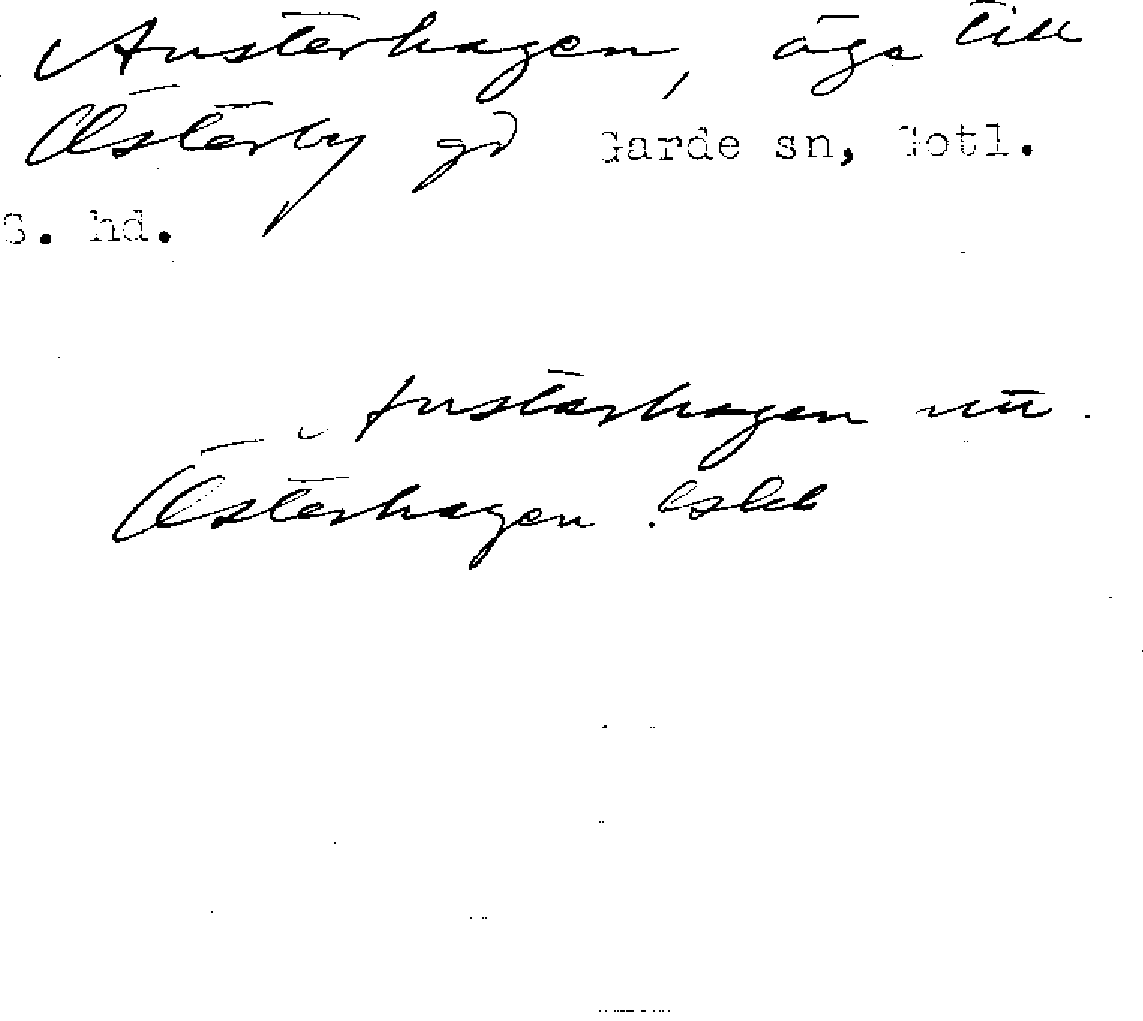 Austerhagen, äga till
Österby gd Garde sn, Gotl.
S. hd.
Austerhagen nu
Österhagen